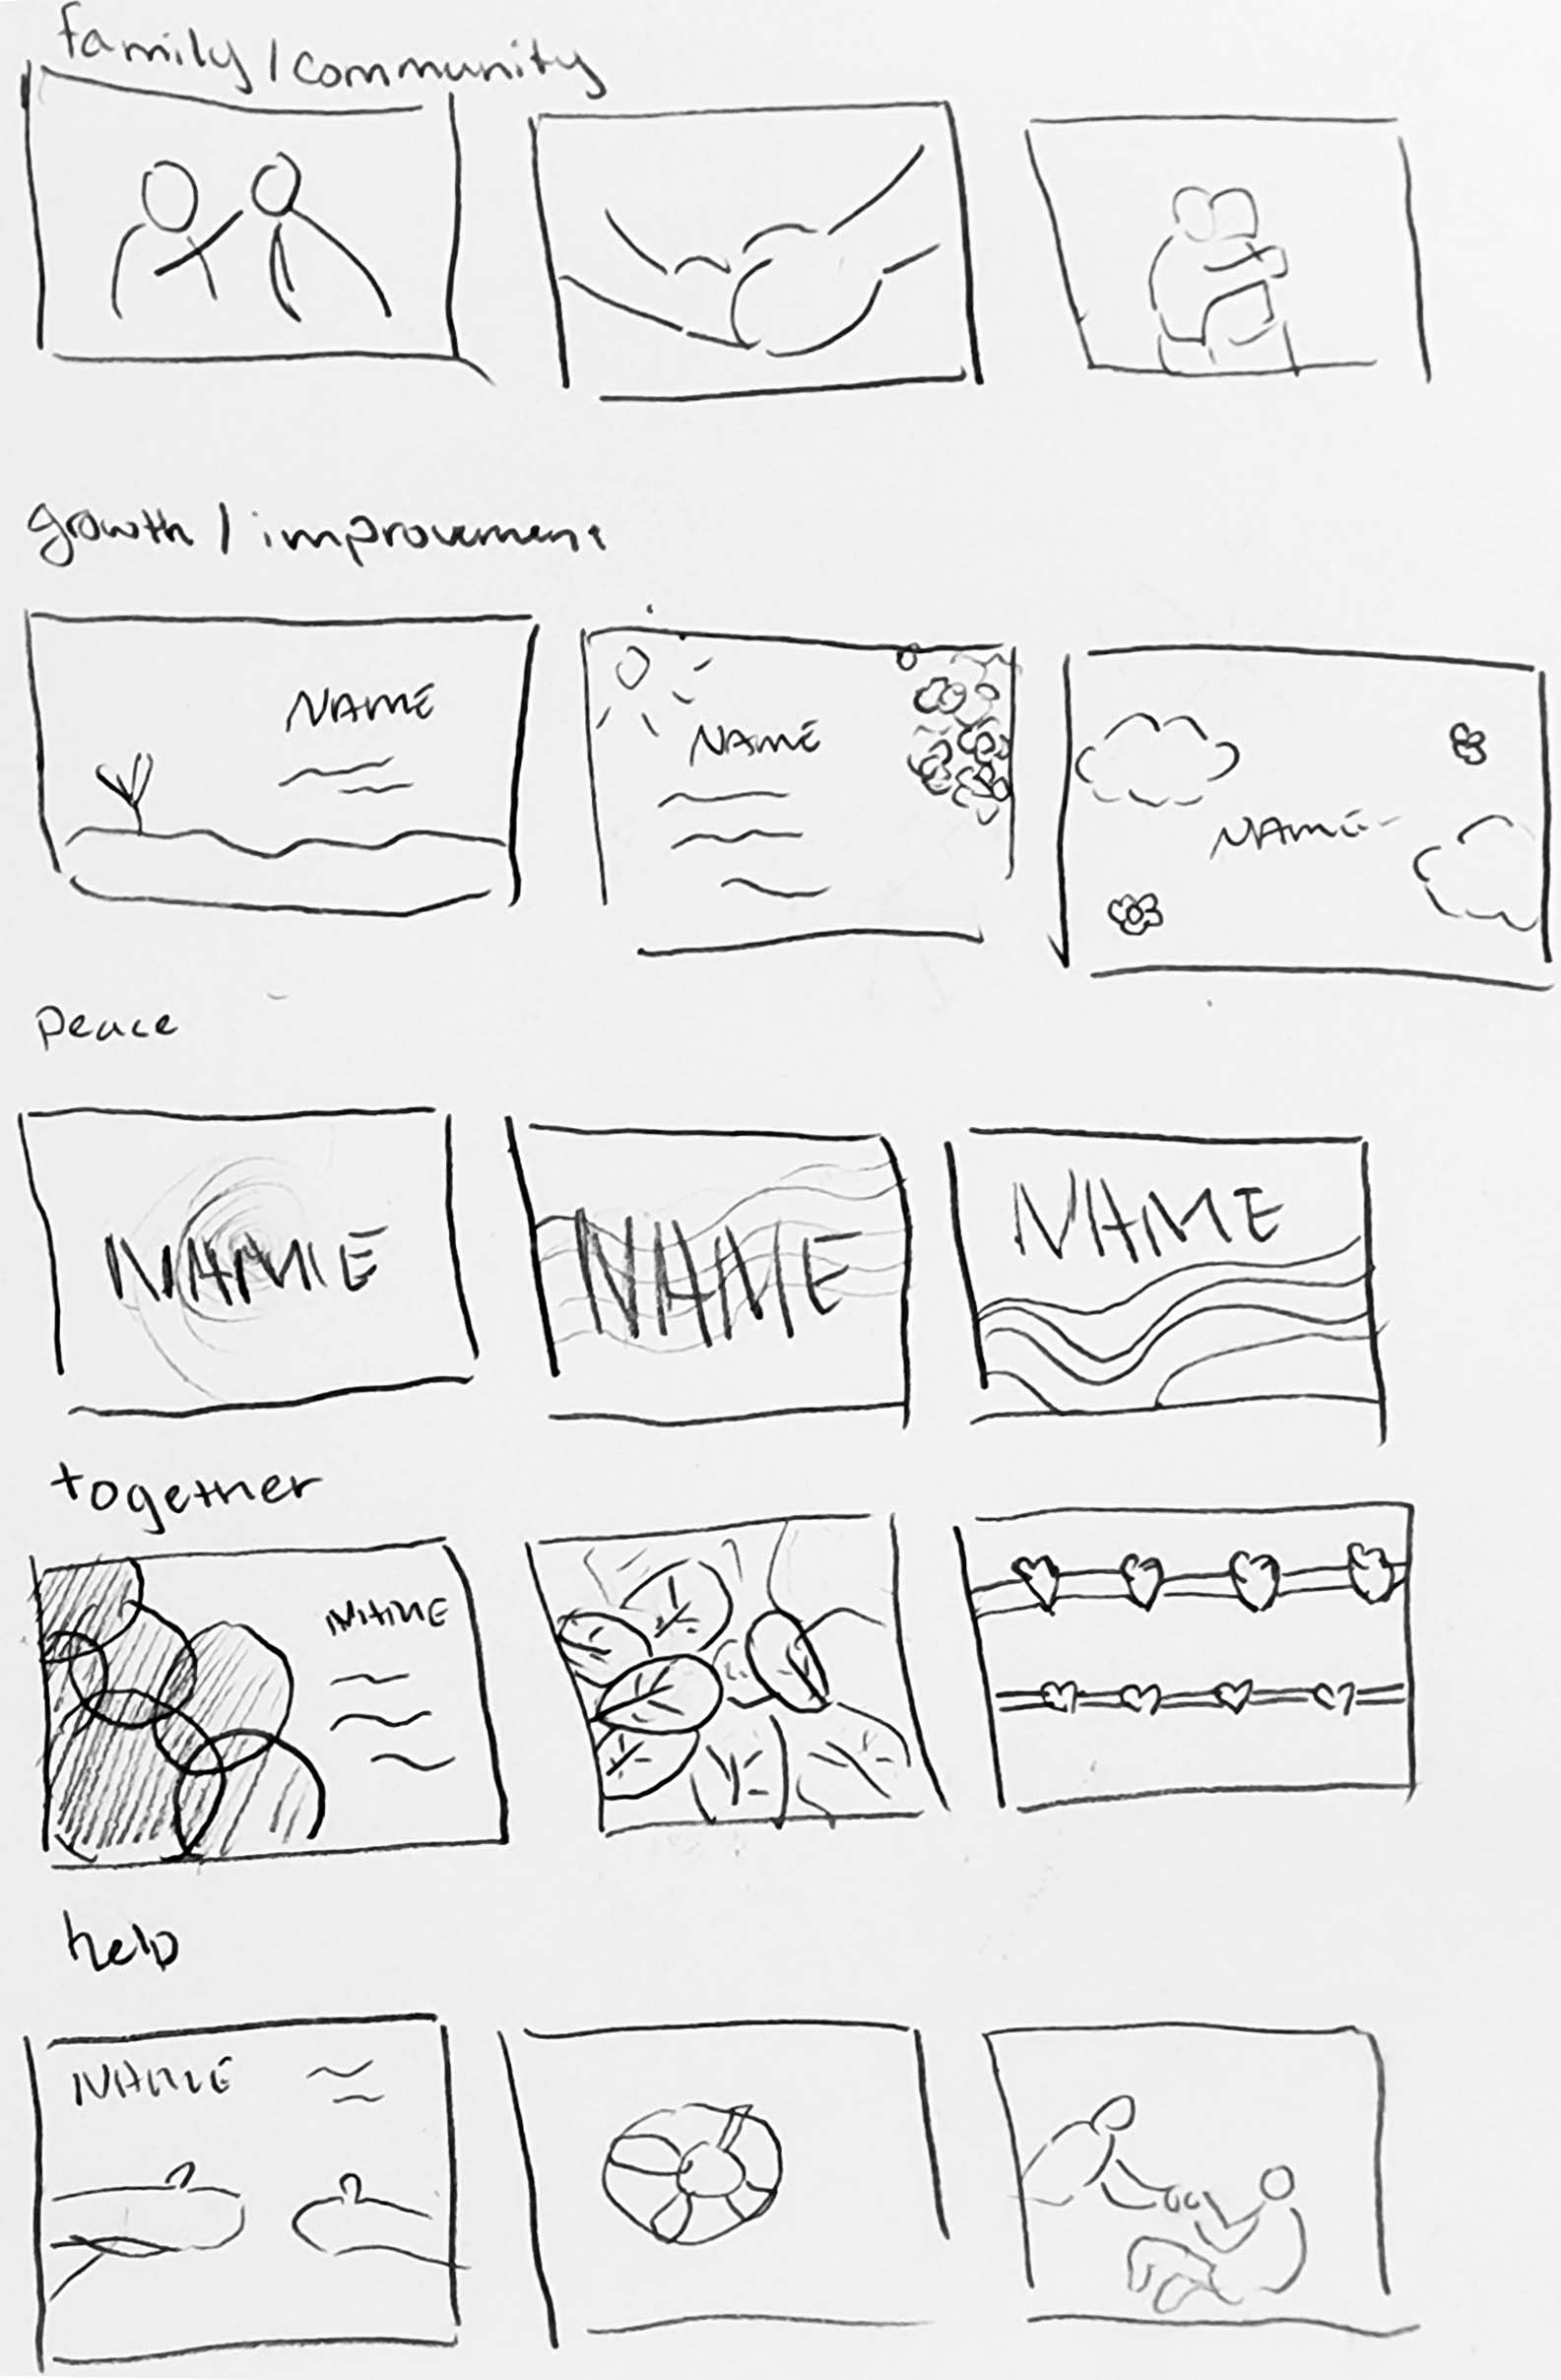 family/community
growth/improvement
NAME
NAME
NAME
Peace
NAME
NAME
NAME
together
NAME
help
NAME